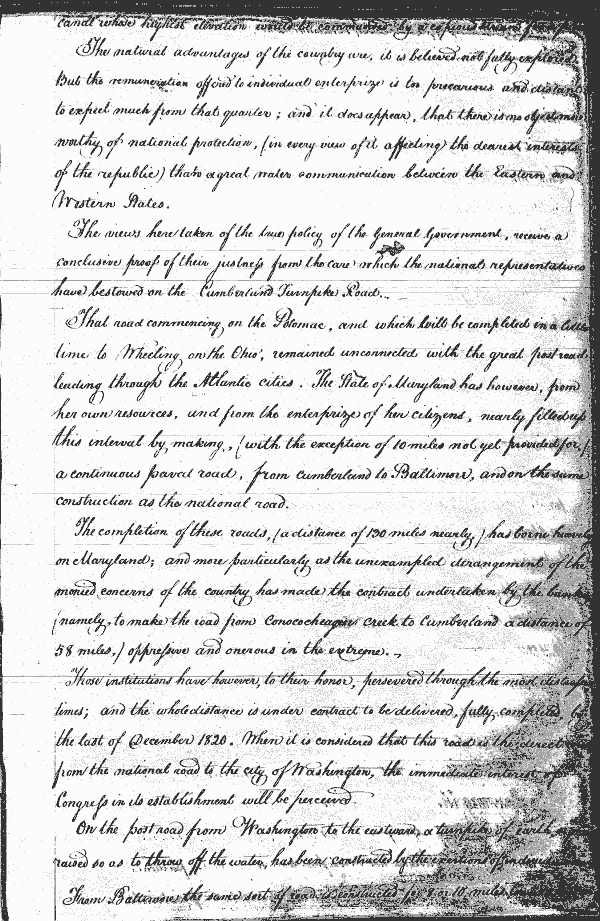 canal whose highest elevation would be commanded by a copious
The natural advantages of the country are, it is believed not fully explored.
But the remuneration offered to individual enterprize is too precarious and distant
to expect much from that quarter; and it does appear, that there is no object more
worthy of national protection, (in every view of it affecting the dearest interests
of the republic) than a great water communication between the Eastern and
Western States.
The views here taken of the true policy of the General Government, receive a
conclusive proof of their justness from the care which the national representatives
have bestowed on the Cumberland Turnpike Road.
That road commencing on the Potomac, and which will be completed in a little
time to Wheeling, on the Ohio, remained unconnected with the great post road
leading through the Atlantic cities. The State of Maryland has however, from
her own resources, and from the enterprize of her citizens, nearly filled up
this interval by making, (with the exception of 10 miles not yet provided for,)
a continuous paved road, from Cumberland to Baltimore, and on the same
construction as the national road.
The completion of these roads, (a distance of 130 miles nearly,) has borne heavily
on Maryland; and more particularly as the unexampled derangement of the
monied concerns of the country has made the contract undertaken by the banks
(namely, to make the road from Conococheague creek to Cumberland a distance of
58 miles,) oppressive and onerous in the extreme.
Those institutions have however, to their honor, persevered through the most
times; and the whole distance is under contract to be delivered, fully completed, by
the last of December 1820. When it is considered that this road is the
from the national road to the city of Washington, the immediate interest of
Congress in its establishment will be perceived.
On the post road from Washington to the eastward, a turnpike of earth,
raised so as to throw off the water, has been constructed by the exertions of
From Baltimore the same sort of road is constructed for 8 or 10 miles